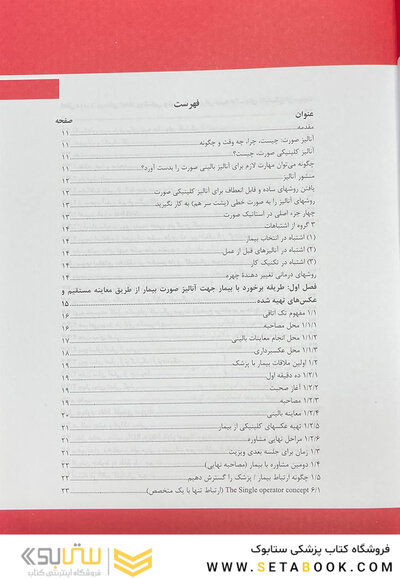 فهرست
عنوان
صفحه
مقدمه ۱۱
آنالیز صورت: چیست، چرا، چه وقت و چگونه ۱۱
آنالیز کلینیکی صورت، چیست؟ ۱۱
چگونه می‌توان مهارت لازم برای آنالیز بالینی صورت را بدست آورد؟ ۱۲
منشور آنالیز ۱۲
یافتن روشهای ساده و قابل انعطاف برای آنالیز کلینیکی صورت ۱۳
روشهای آنالیز را به صورت خطی (پشت سر هم) به کار نگیرید ۱۳
چهار جزء اصلی در استاتیک صورت ۱۳
۳ گروه از اشتباهات ۱۴
(۱) اشتباه در انتخاب بیمار ۱۴
(۲) اشتباه در آنالیزهای قبل از عمل ۱۴
(۳) اشتباه در تکنیک کار ۱۴
روشهای درمانی تغییر دهندهٔ چهره ۱۴
فصل اول: طریقه برخورد با بیمار جهت آنالیز صورت بیمار از طریق معاینه مستقیم و
عکس‌های تهیه شده ۱۵
۱/۱ مفهوم تک اتاقی ۱۶
۱/۱/۱ محل مصاحبه ۱۶
۱/۱/۲ محل انجام معاینات بالینی ۱۷
۱/۱/۳ محل عکسبرداری ۱۸
۱/۲ اولین ملاقات بیمار با پزشک ۱۹
۱/۲/۱ ده دقیقه اول ۱۹
۱/۲/۲ آغاز صحبت ۱۹
۱/۲/۳ مصاحبه ۱۹
۱/۲/۴ معاینه بالینی ۲۰
۱/۲/۵ تهیه عکسهای کلینیکی از بیمار ۲۱
۱/۲/۶ مراحل نهایی مشاوره ۲۱
۱/۳ زمان برای جلسه بعدی ویزیت ۲۱
۱/۴ دومین مشاوره با بیمار (مصاحبه نهایی) ۲۲
۱/۵ چگونه ارتباط بیمار / پزشک را گسترش دهیم ۲۲
۶/۱ The Single operator concept (ارتباط تنها با یک متخصص) ۲۳
فروشگاه کتاب پزشکی ستابوک
www.SETABOOK.com
ستابوک
فروشگاه اینترنتی کتاب